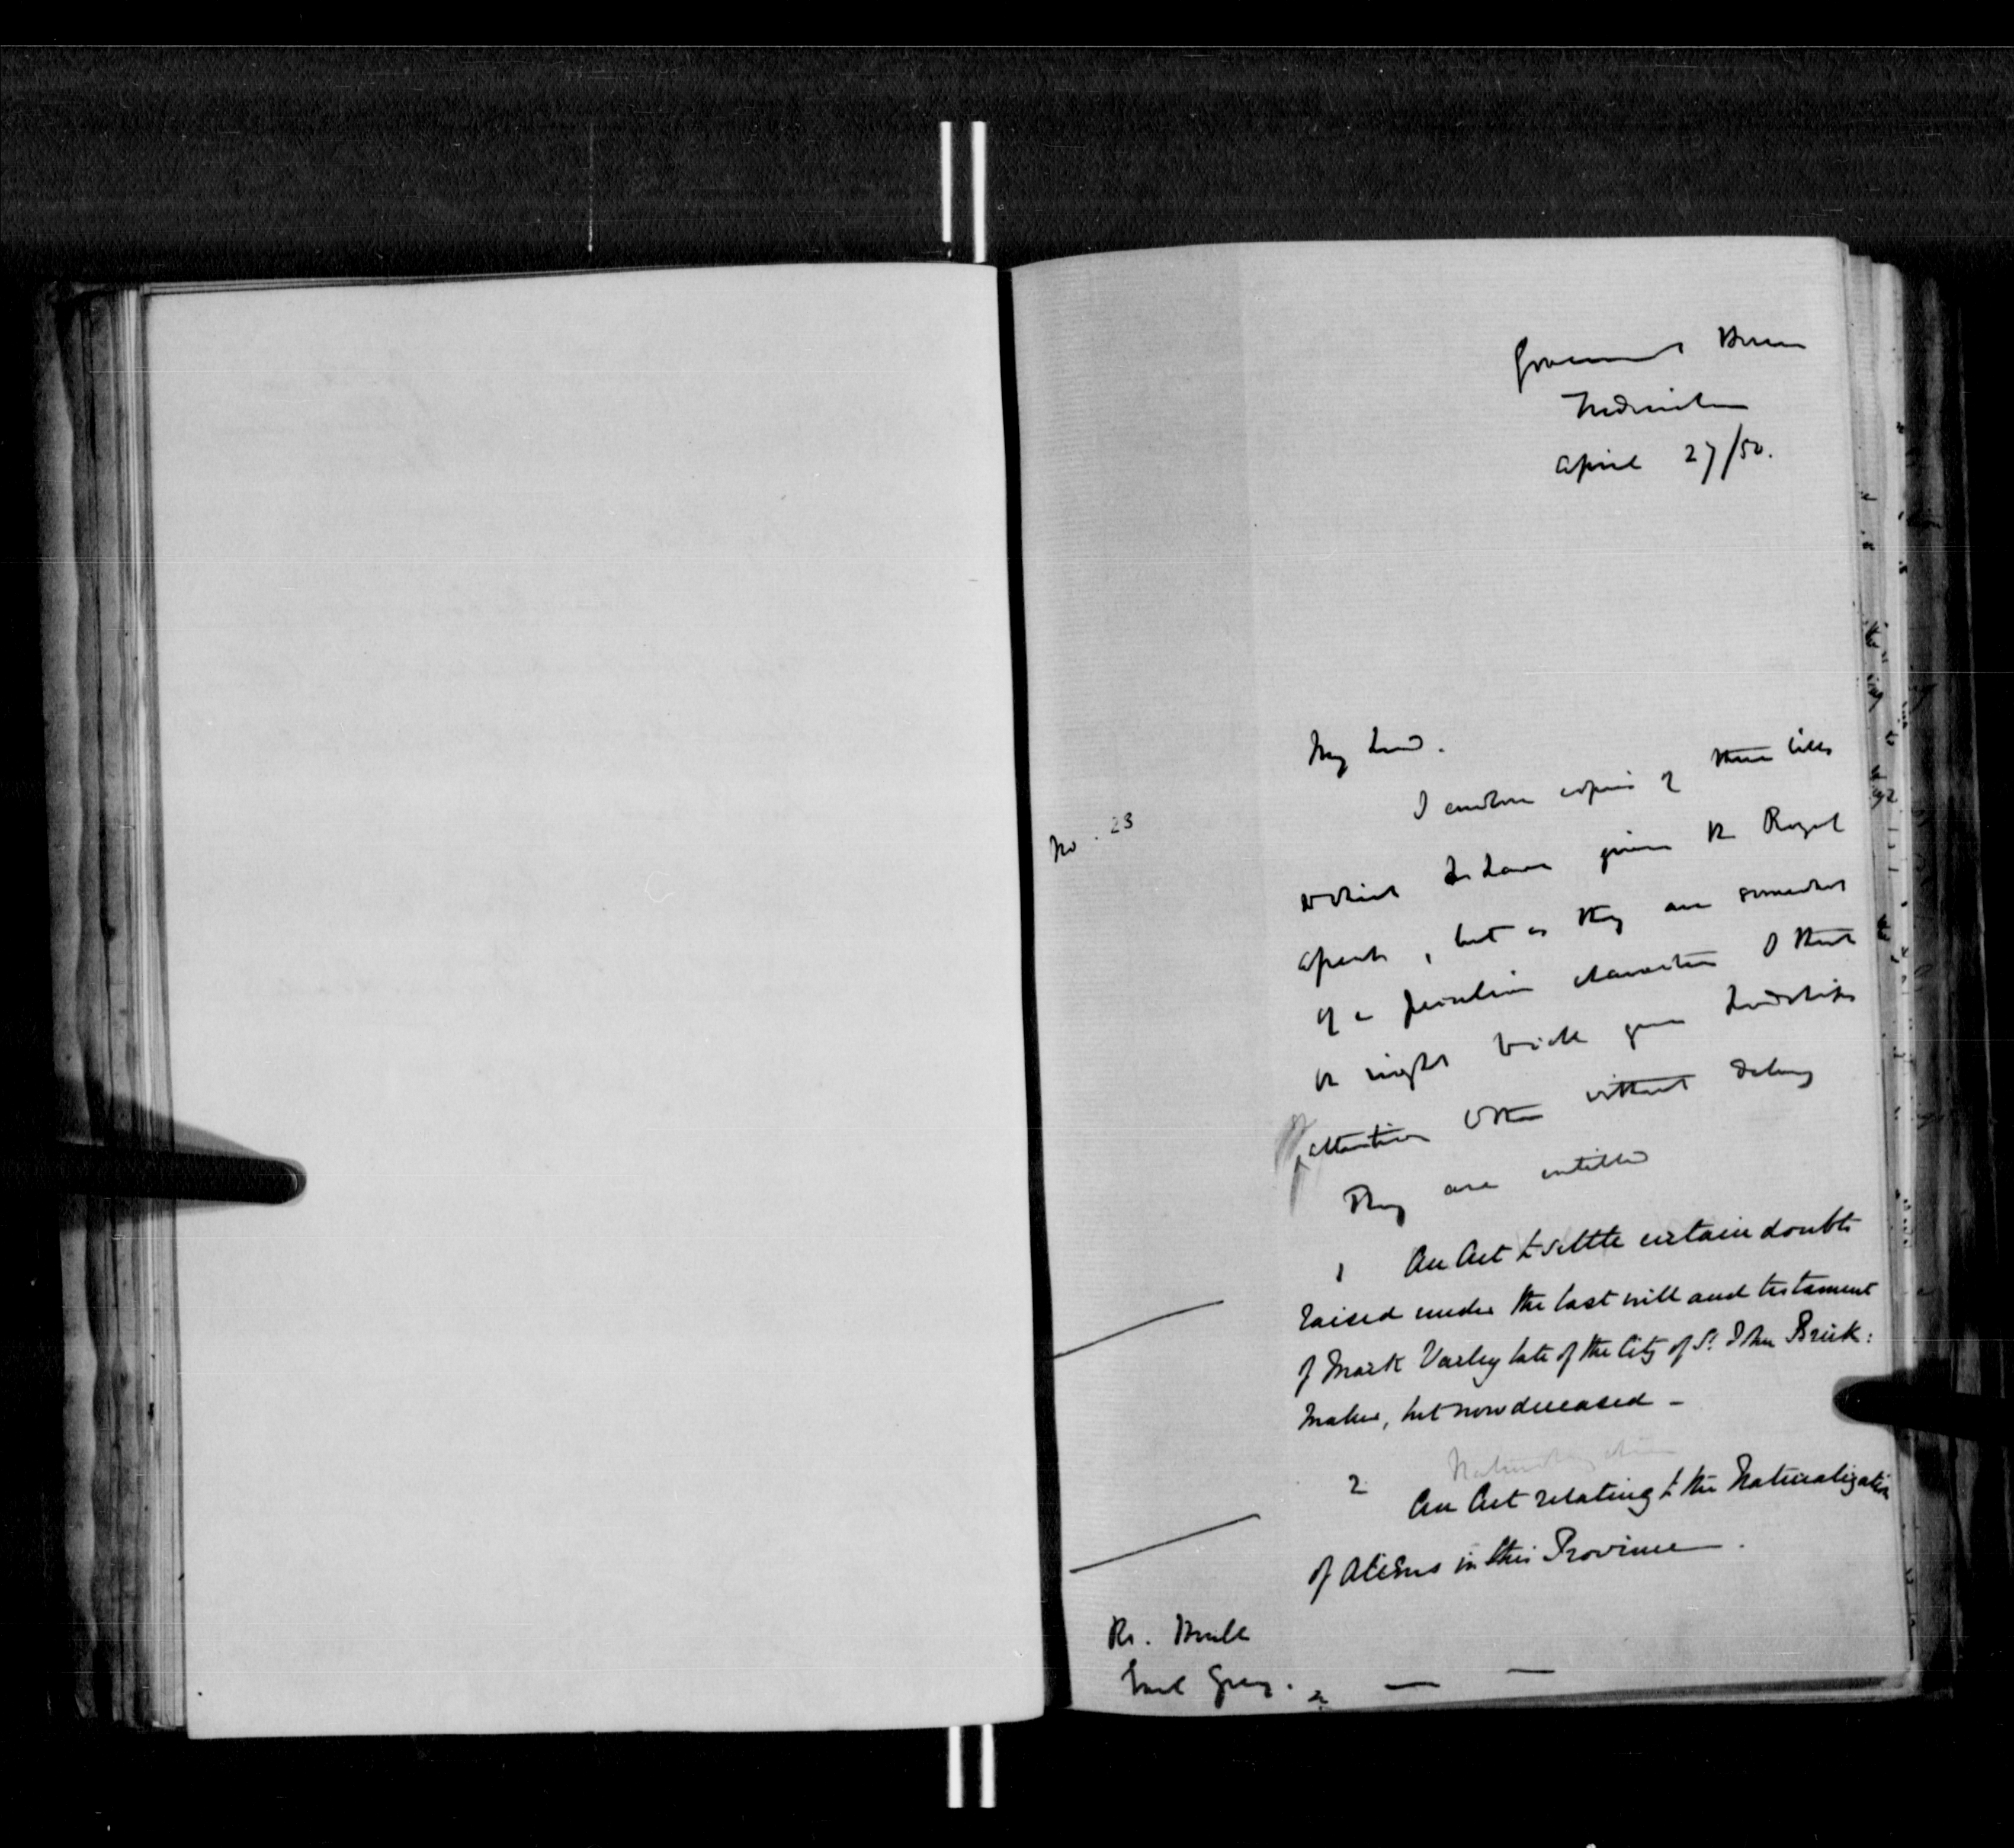 Government House
Fredericton
April 27/50.
My Lord.
No. 23
I enclose copies of three bills
which I have given the Royal
Assent, but as they are somewhat
of a peculiar character I think
it right to call your Lordships
attention to them without delay
They are entitled
1 An Act to settle certain doubts
raised under the last will and testament
of Mark Varley late of the City of St. John Brick:
maker, but now deceased -
Naturalization
2 An Act relating to the Naturalization
of Aliens in this Province.
Rt. Honble
Earl Grey.